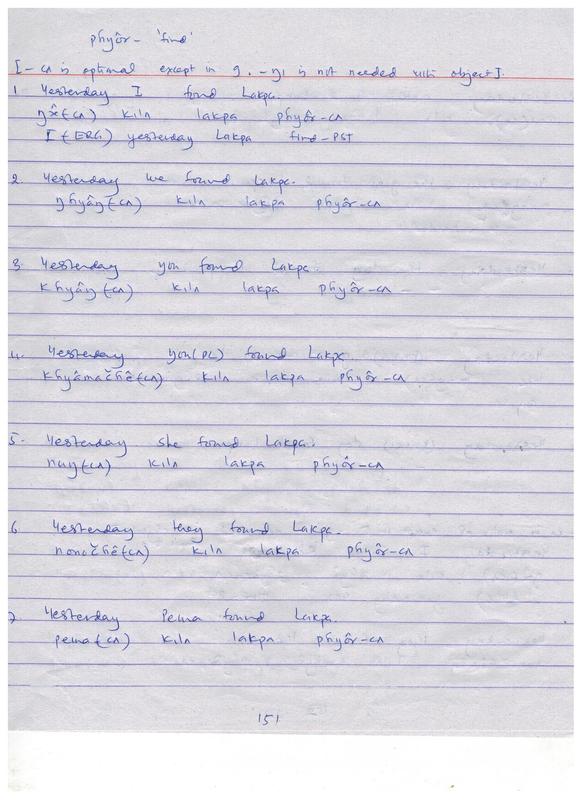 phyôr- 'find'
[-cʌ is optional except in 9. -ŋi is not needed with object].
1 Yesterday I found Lakpa.
(cʌ) kilʌ lakpa phyôr-cʌ
I (ERG) yesterday Lakpa find-PST
2. Yesterday we found Lakpa.
ŋhyâŋ(-cʌ) kilʌ lakpa phyôr-cʌ
3. Yesterday you found Lakpa.
khyâŋ(cʌ) kilʌ lakpa phyôr-cʌ
4. Yesterday you(PL) found Lakpa
khyâmačhê(cʌ) kilʌ lakpa phyôr-cʌ
5. Yesterday she found Lakpa.
(cʌ) kilʌ lakpa phyôr-cʌ
6 Yesterday they found Lakpa.
nonočhê(cʌ) kilʌ lakpa phyôr-cʌ
7 Yesterday Pema found Lakpa.
pema(cʌ) kilʌ lakpa phyôr-cʌ
151